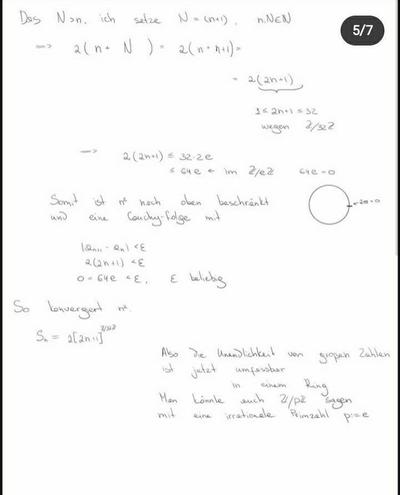 Das N>n, ich setze N = (n+1), n,N∈N
5/7
=> 2(n + N) = 2(n + n+1) =
= 2(2n+1)
1 ≤ 2n+1 ≤ 32
wegen Z/32Z
=> 2(2n+1) ≤ 32·2e
≤ 64e ← im Z/eZ 64e = 0
Somit ist n² nach oben beschränkt
und eine Cauchy-folge mit
|an+1 - an| < ε
2(2n+1) < ε
0 = 64e < ε, ε beliebig
So konvergiert n².
Sn = 2[2n+1]
Also die Unendlichkeit von großen Zahlen
ist jetzt umfassbar
in einem Ring
Man könnte auch Z/pZ sagen
mit eine irrationale Primzahl p:=e